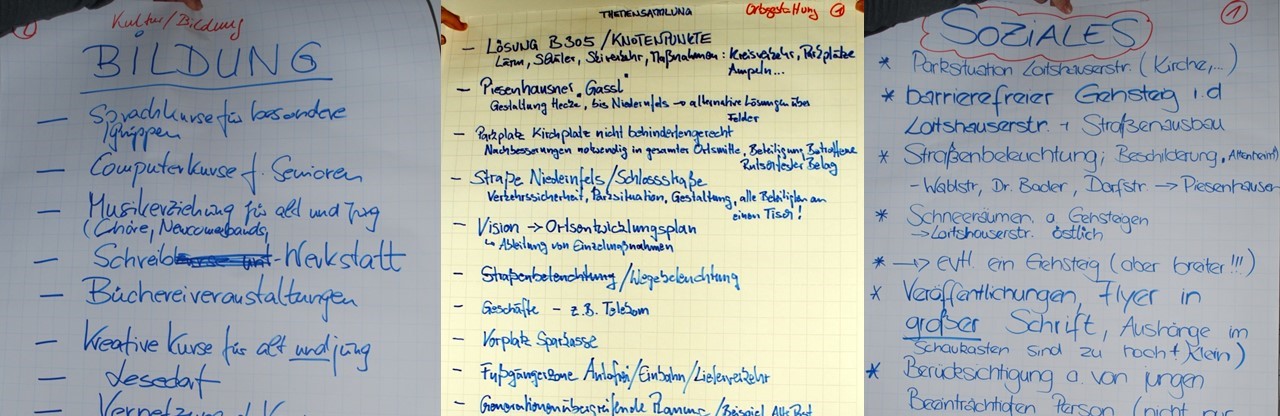 Kultur/Bildung
BILDUNG
— Sprachkurse für besondere
Gruppen
— Computerkurse f. Senioren
— Musikerziehung für alt und jung
(Chöre, Newcomerbands,
— Schreib -Werkstatt
— Büchereiveranstaltungen
— Kreative Kurse für alt und jung
— Lesedorf
— Vernetzung
THEMENSAMMLUNG
Ortsgestaltung 1
– LÖSUNG B305/KNOTENPUNKTE
Lärm, Schüler, Skiverkehr, Maßnahmen: Kreisverkehr, Parkplätze
Ampeln...
– Piesenhausner "Gassl"
Gestaltung Hecke, bis Niedernfels → alternative Lösungen über
Felder
– Parkplatz Kirchplatz nicht behindertengerecht
Nachbesserungen notwendig in gesamter Ortsmitte, Beteiligung Betroffene
Rutschfester Belag
– Straße Niedernfels/Schlossstraße
Verkehrssicherheit, Parksituation, Gestaltung, alle Beteiligten an
einen Tisch!
– Vision → Ortsentwicklungsplan
↳ Ableitung von Einzelmaßnahmen
– Straßenbeleuchtung/Wegebeleuchtung
– Geschäfte – z.B. Telekom
– Vorplatz Sparkasse
– Fußgängerzone Autofrei/Einbahn/Lieferverkehr
– Generationenübergreifende Planung/Beispiel
1
SOZIALES
* Parksituation Loitshauserstr. (Kirche,...)
* barrierefreier Gehsteig i.d
Loitshauserstr. + Straßenausbau
* Straßenbeleuchtung; Beschilderung, Altenheim)
- Waldstr, Dr. Bader, Dorfstr. → Piesenhausen
* Schneeräumen a Gehsteigen
→ Loitshauserstr. östlich
* → evtl ein Gehsteig (aber breiter!!!)
* Veröffentlichungen, Flyer in
großer Schrift, Aushänge im
Schaukasten sind zu hoch + klein)
* Berücksichtigung a. von jungen
Beeinträchtigten Person (nicht nur